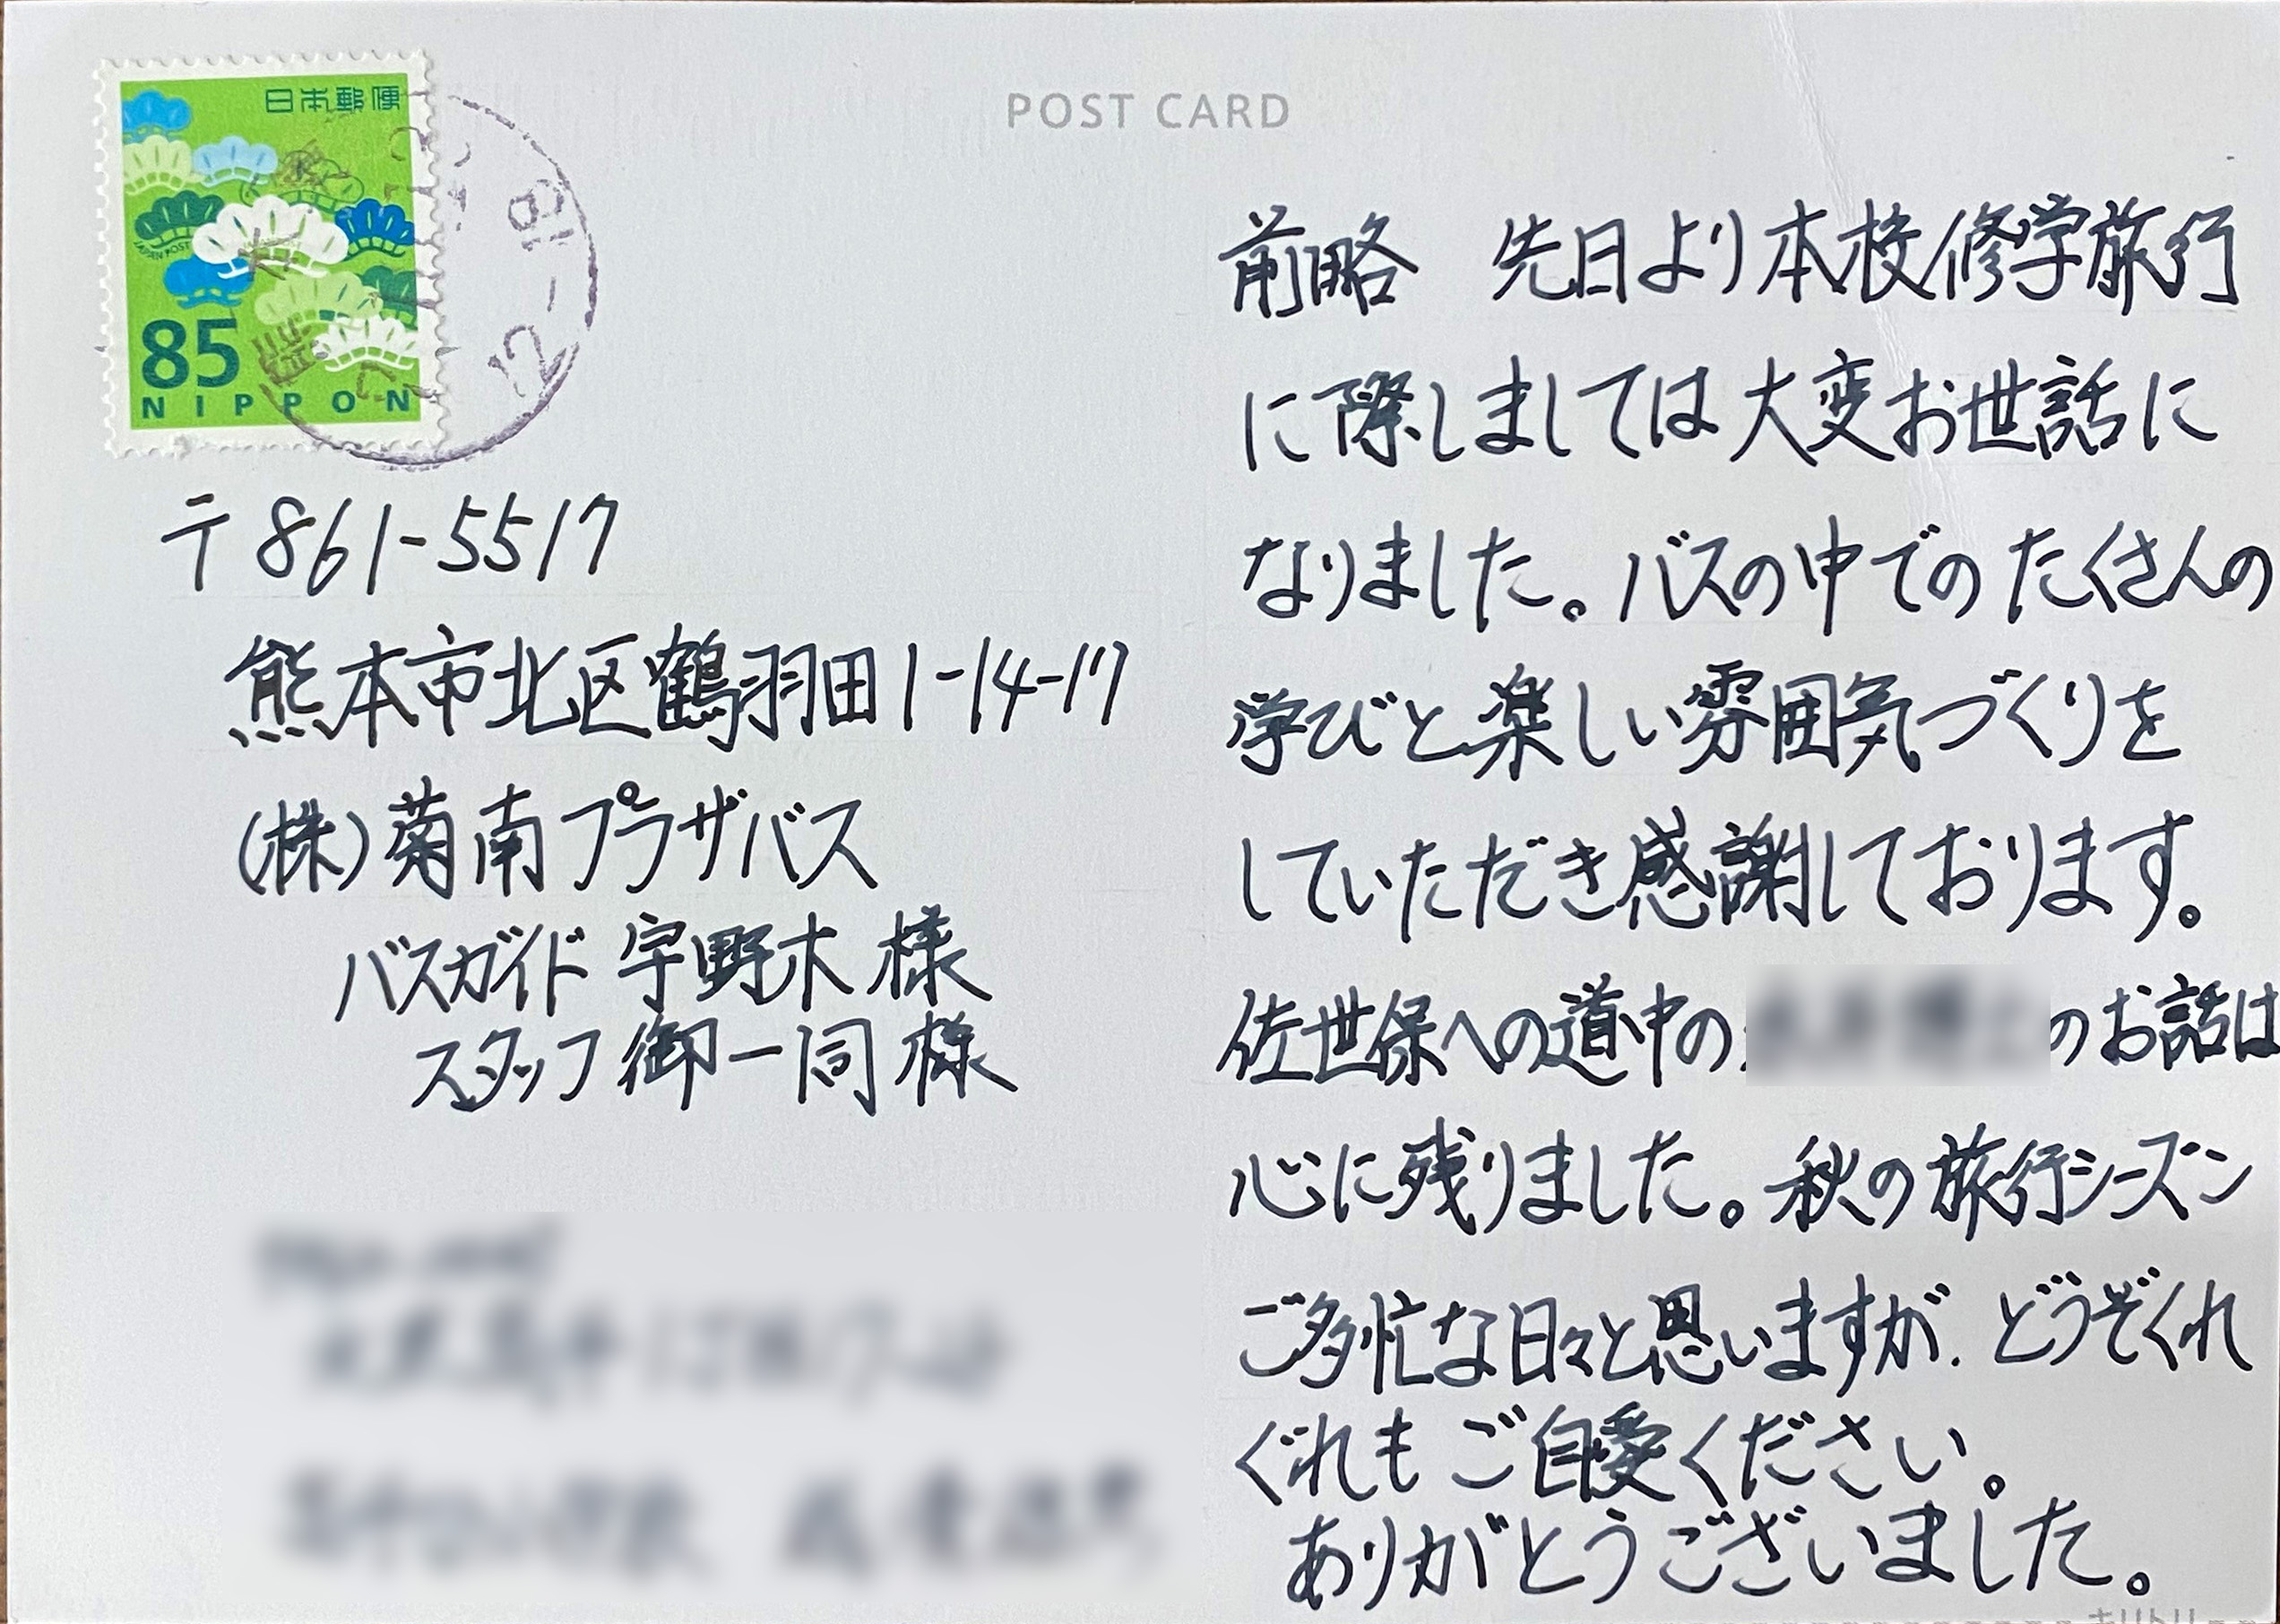 日本郵便
85
NIPPON
POST CARD
〒861-5517
熊本市北区鶴羽田1-14-17
(株)菊南プラザバス
バスガイド 宇野木 様
スタッフ 御一同 様
前略 先日より本校修学旅行
に際しましては大変お世話に
なりました。バスの中でのたくさんの
学びと楽しい雰囲気づくりを
していただき感謝しております。
佐世保への道中の
のお話は
心に残りました。秋の旅行シーズン
ご多忙な日々と思いますが、どうぞくれ
ぐれもご自愛ください。
ありがとうございました。